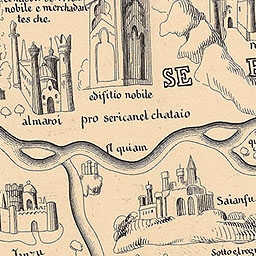 nobile e merchadan
tes che.
edifitio nobile
SE
almaroi
pro sericanel chataio
fl quiam
Saianfu
Inzu